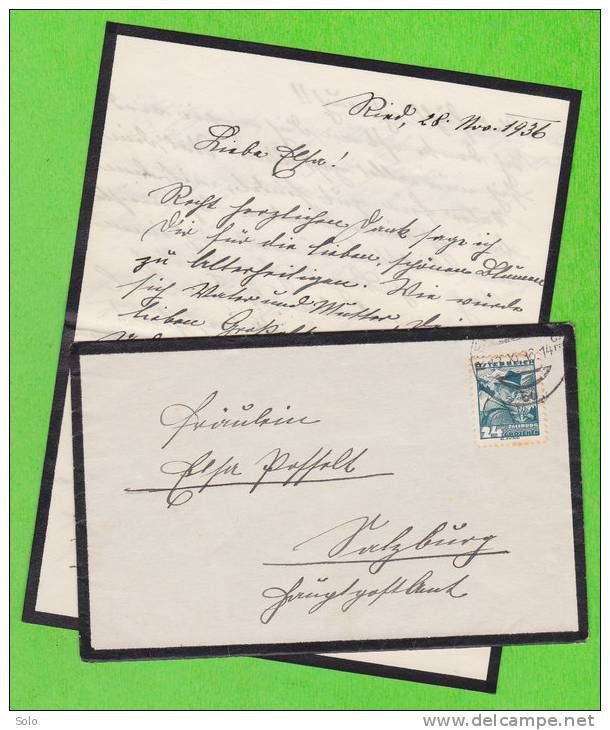 Ried, 28. Nov. 1936
Liebe Elsa!
Recht herzlichen Dank sage ich
Dir für die lieben, schönen Blumen
zu Allerheiligen. Wie würde
sich Vater und Mutter, die
lieben
ÖSTERREICH
24
SALZBURG
GROSCHEN
Fräulein
Elsa Posselt
Salzburg
Hauptpostamt
Solo
delcampe.net